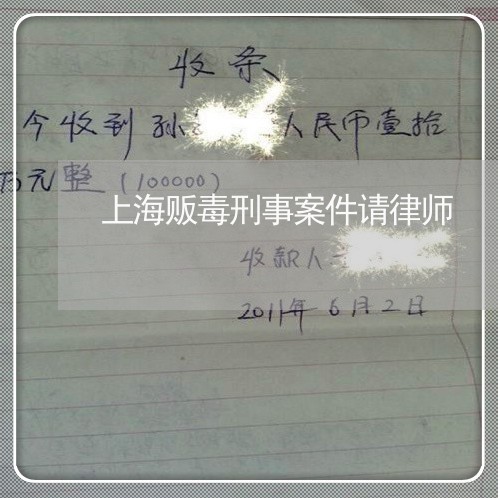 收条
今收到孙 人民币壹拾
万元整（100000）
上海贩毒刑事案件请律师
收款人
2011年6月2日